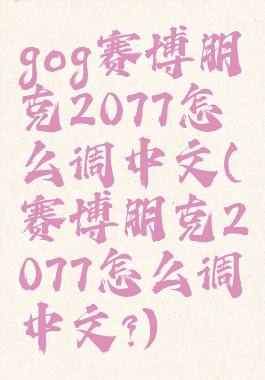 gog赛博朋
克2077怎
么调中文(
赛博朋克2
077怎么调
中文?)